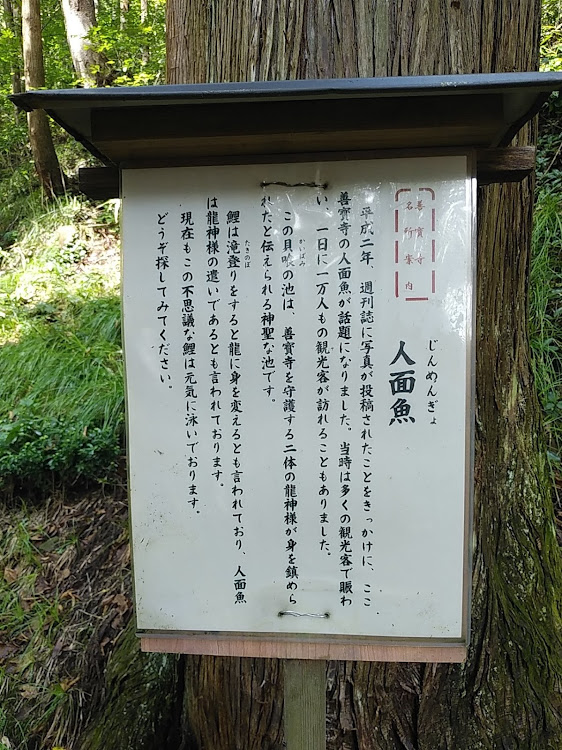 善寳寺
名所案内
じんめんぎょ
人面魚
平成二年、週刊誌に写真が投稿されたことをきっかけに、ここ
善寳寺の人面魚が話題になりました。当時は多くの観光客で賑わ
い、一日に一万人もの観光客が訪れることもありました。
かいばみ
この貝喰の池は、善寳寺を守護する二体の龍神様が身を鎮めら
れたと伝えられる神聖な池です。
たきのぼ
鯉は滝登りをすると龍に身を変えるとも言われており、人面魚
は龍神様の遣いであるとも言われております。
現在もこの不思議な鯉は元気に泳いでおります。
どうぞ探してみてください。